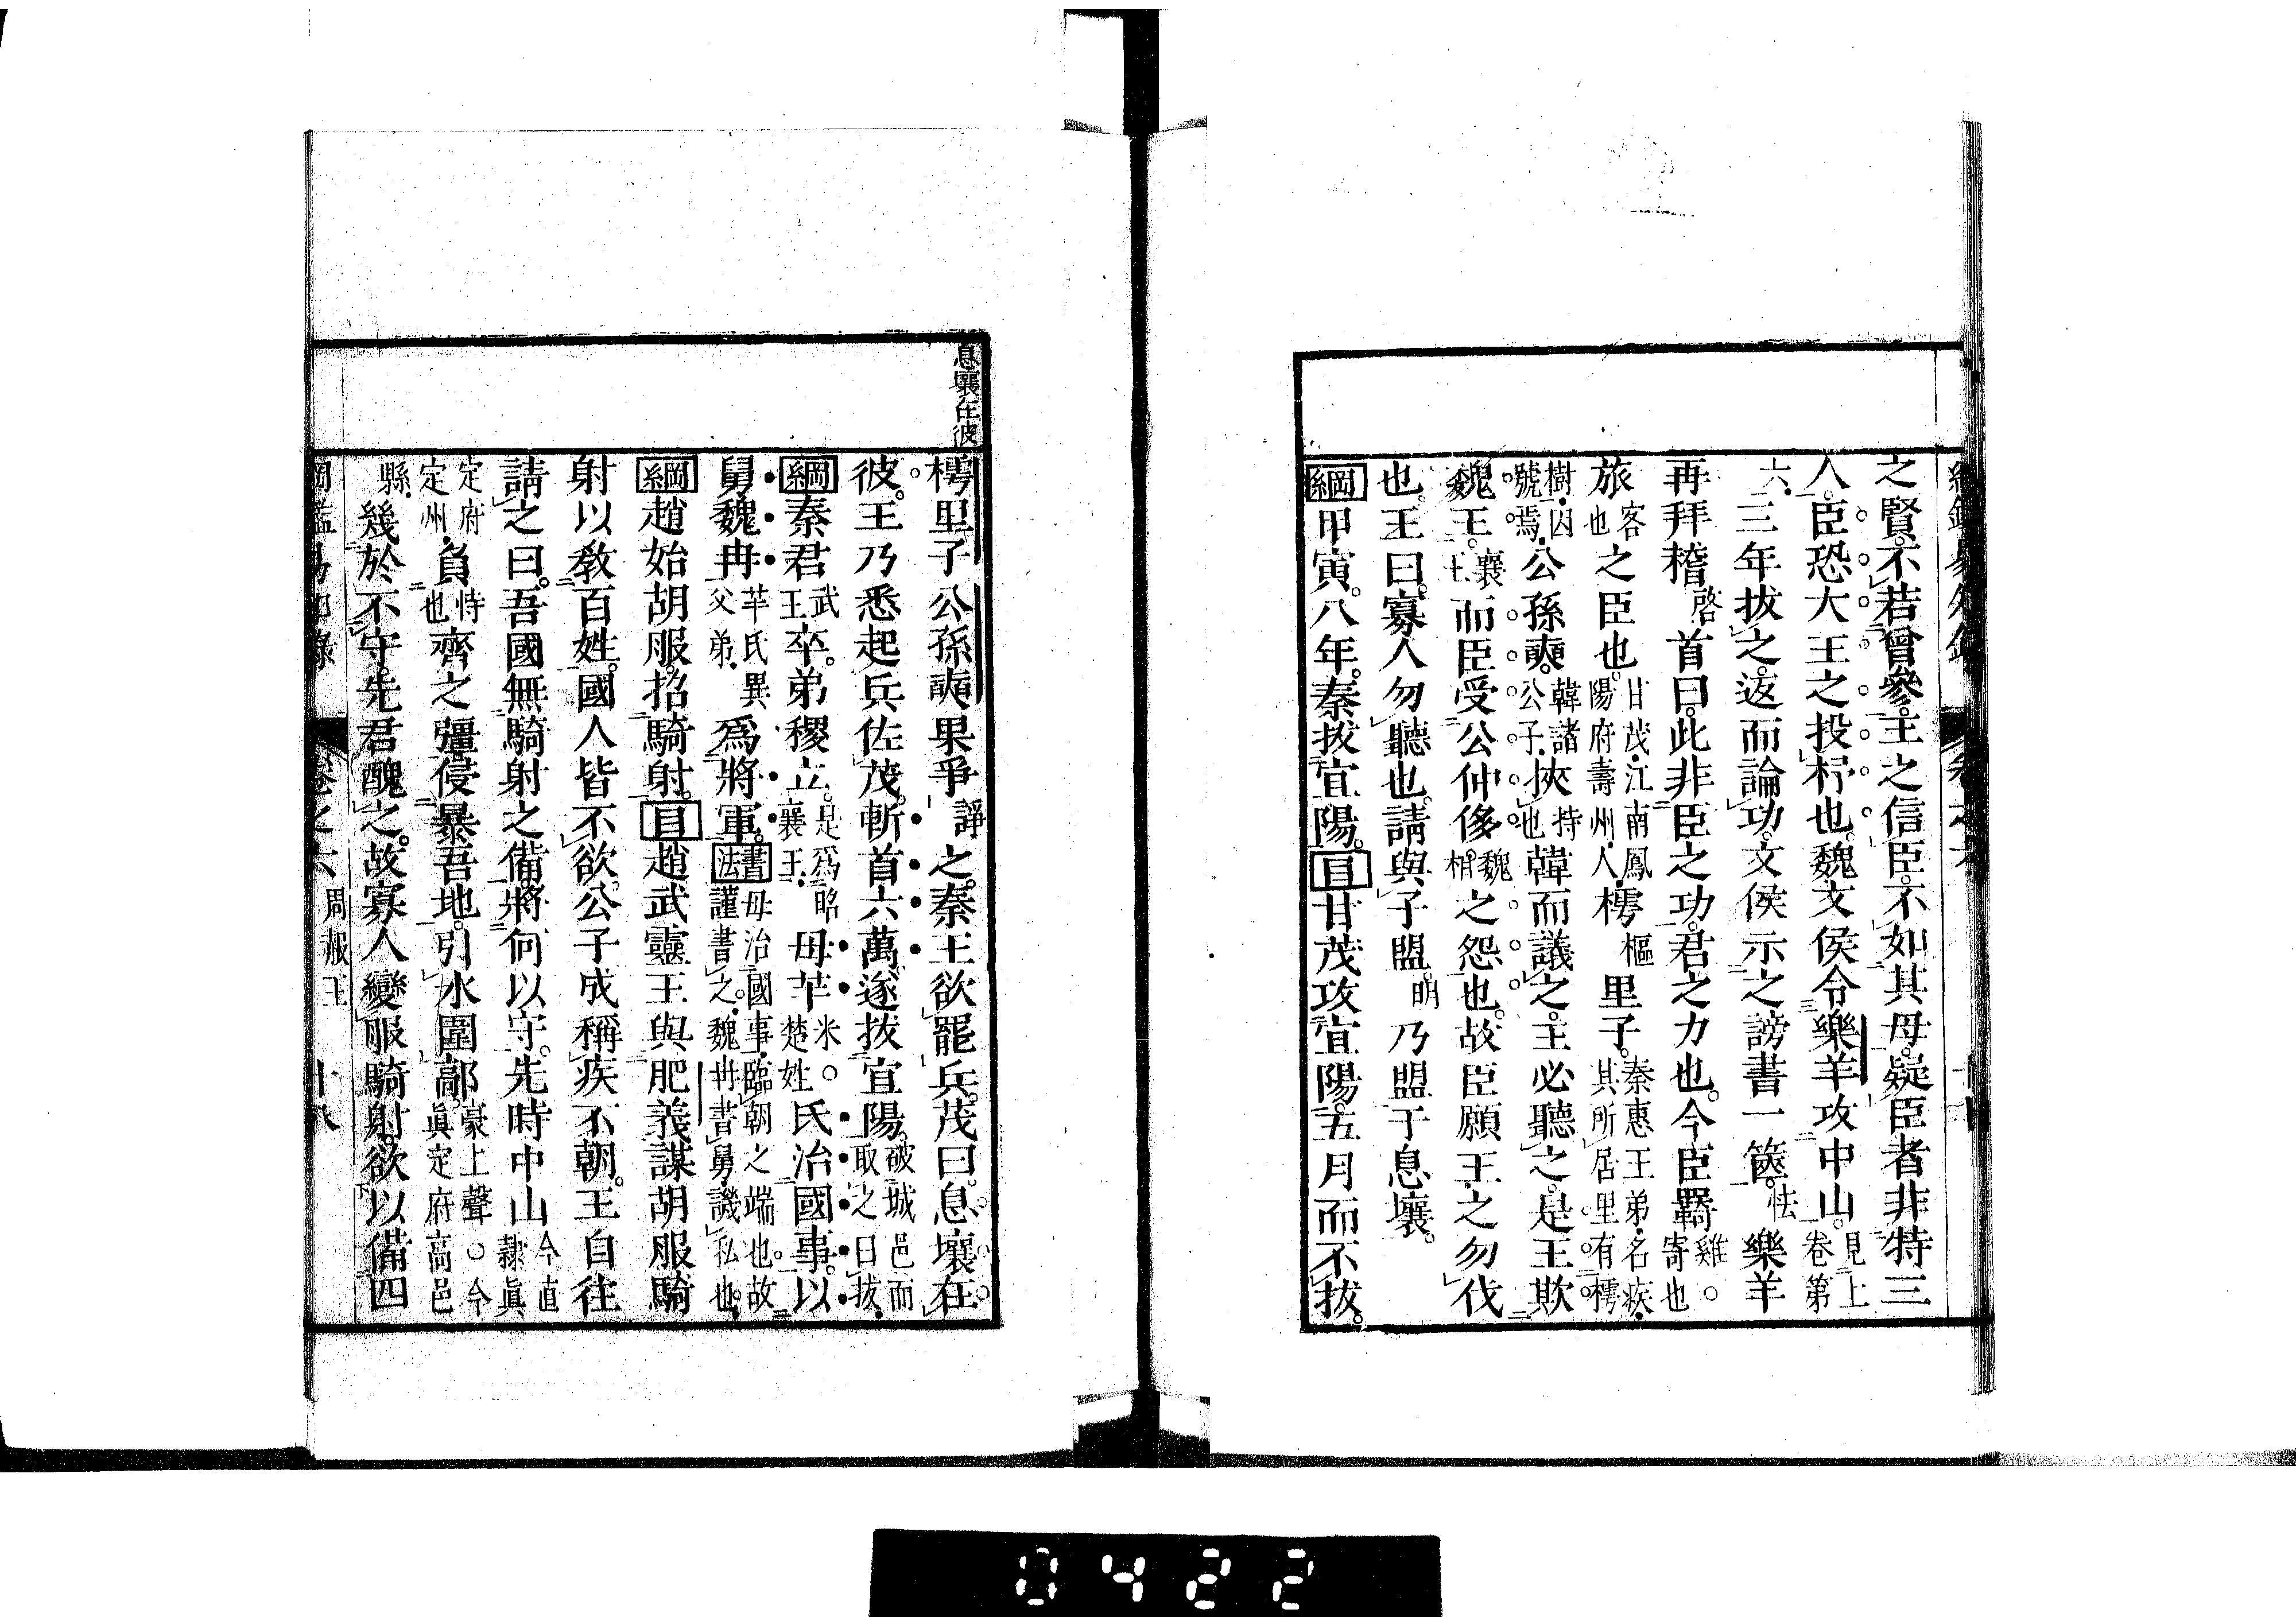 之賢不若曾參王之信臣不如其母疑臣者非特三
人臣恐大王之投杼也魏文侯令樂羊攻中山見上卷第
六三年拔之返而論功文侯示之謗書一篋怯樂羊
再拜稽啓首曰此非臣之功君之力也今臣羇雞○寄也
旅客也之臣也甘茂江南鳳陽府壽州人樗樞里子秦惠王弟名疾其所居里有樗
樹因號焉公孫奭韓諸公子挾持也韓而議之王必聽之是王欺
魏王襄王而臣受公仲侈魏相之怨也故臣願王之勿伐
也王曰寡人勿聽也請與子盟明乃盟于息壤
綱甲寅八年秦拔宜陽目甘茂攻宜陽五月而不拔
息壤在彼
樗里子公孫奭果爭諍之秦王欲罷兵茂曰息壤在
彼王乃悉起兵佐茂斬首六萬遂拔宜陽破城邑而取之曰拔
綱秦君武王卒弟稷立是爲昭襄王母芈米○楚姓氏治國事以
舅魏冉芈氏異父弟爲將軍書法母治國事臨朝之端也故謹書之魏冉書舅譏私也
綱趙始胡服招騎射目趙武靈王與肥義謀胡服騎
射以敎百姓國人皆不欲公子成稱疾不朝王自往
請之曰吾國無騎射之備將何以守先時中山今直隸眞
定府定州負恃也齊之彊侵暴吾地引水圍鄗豪上聲○今眞定府高邑
縣幾於不守先君醜之故寡人變服騎射欲以備四
卷之六 周赧王 十八
0422